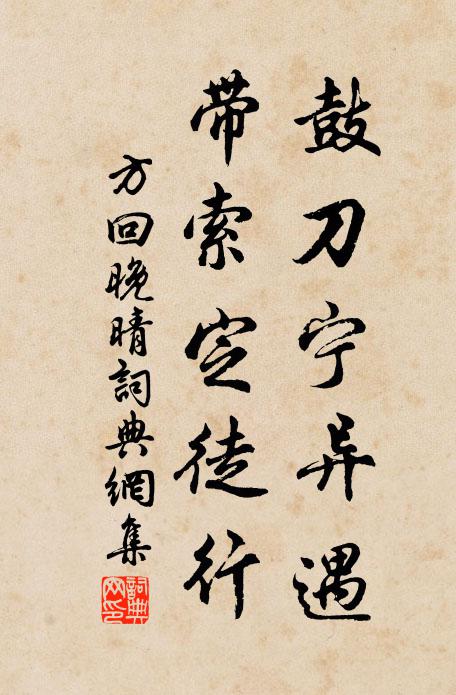 鼓刀宁异遇
带索定徒行
方回晚晴詞典網集
詞典网印